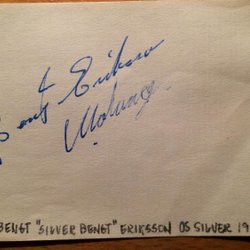 Bengt Eriksson
BENGT "SILVER BENGT" ERIKSSON OS SILVER 19